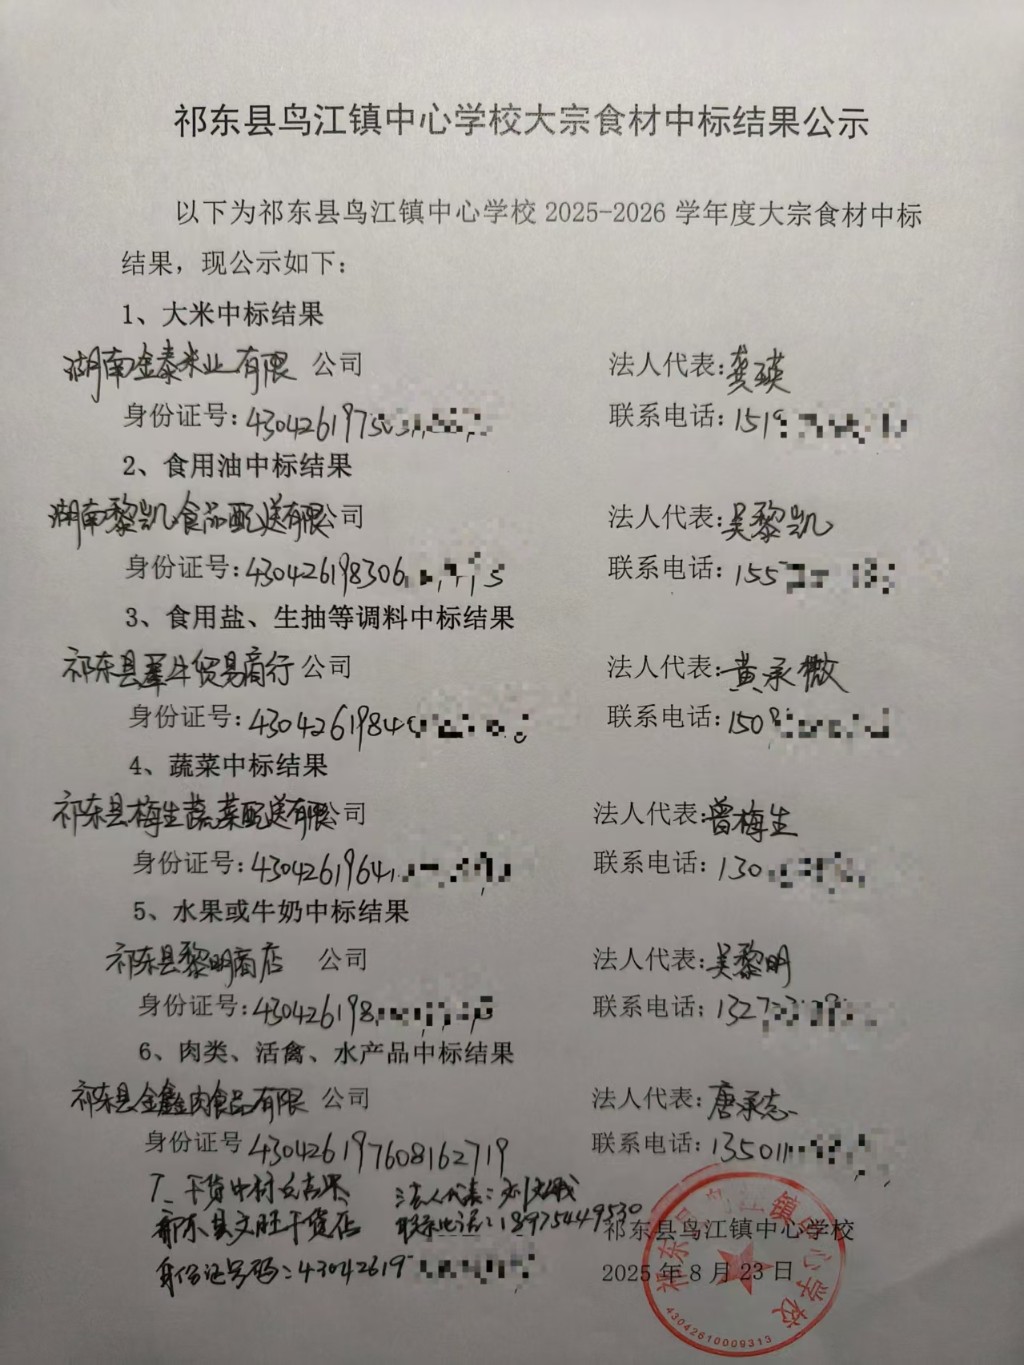 祁东县鸟江镇中心学校大宗食材中标结果公示
以下为祁东县鸟江镇中心学校 2025-2026 学年度大宗食材中标
结果，现公示如下：
1、大米中标结果
湖南金泰米业有限 公司 法人代表：龚瑛
身份证号：430426197 联系电话：151
2、食用油中标结果
湖南黎凯食品配送有限公司 法人代表：吴黎凯
身份证号：43042619830 联系电话：155
3、食用盐、生抽等调料中标结果
祁东县犟牛贸易商行 公司 法人代表：黄承微
身份证号：4304261984 联系电话：150
4、蔬菜中标结果
祁东县梅生蔬菜配送有限公司 法人代表：曾梅生
身份证号：4304261964 联系电话：130
5、水果或牛奶中标结果
祁东县黎明商店 公司 法人代表：吴黎明
身份证号：430426198 联系电话：1327
6、肉类、活禽、水产品中标结果
祁东县金鑫肉食品有限 公司 法人代表：唐承志
身份证号 430426197608162719 联系电话：13501
7、干货中标结果 法人代表：
祁东县文旺干货店 联系电话：18975449530
身份证号码：43042619
祁东县鸟江镇中心学校
2025 年 8 月 23 日
祁东县鸟江镇中心学校
43042610009313